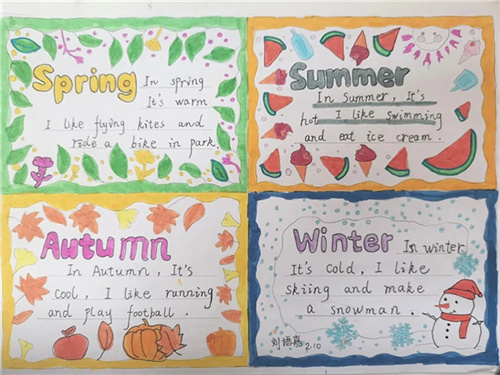 Spring In spring
It's warm
I like flying kites and
ride a bike in park.
Summer
In Summer, It's
hot I like Swimming
and eat ice cream.
Autumn
In Autumn, It's
cool, I like running
and play football.
Winter In winter
It's cold, I like
skiing and make
a snowman.
刘语嘉 2.10